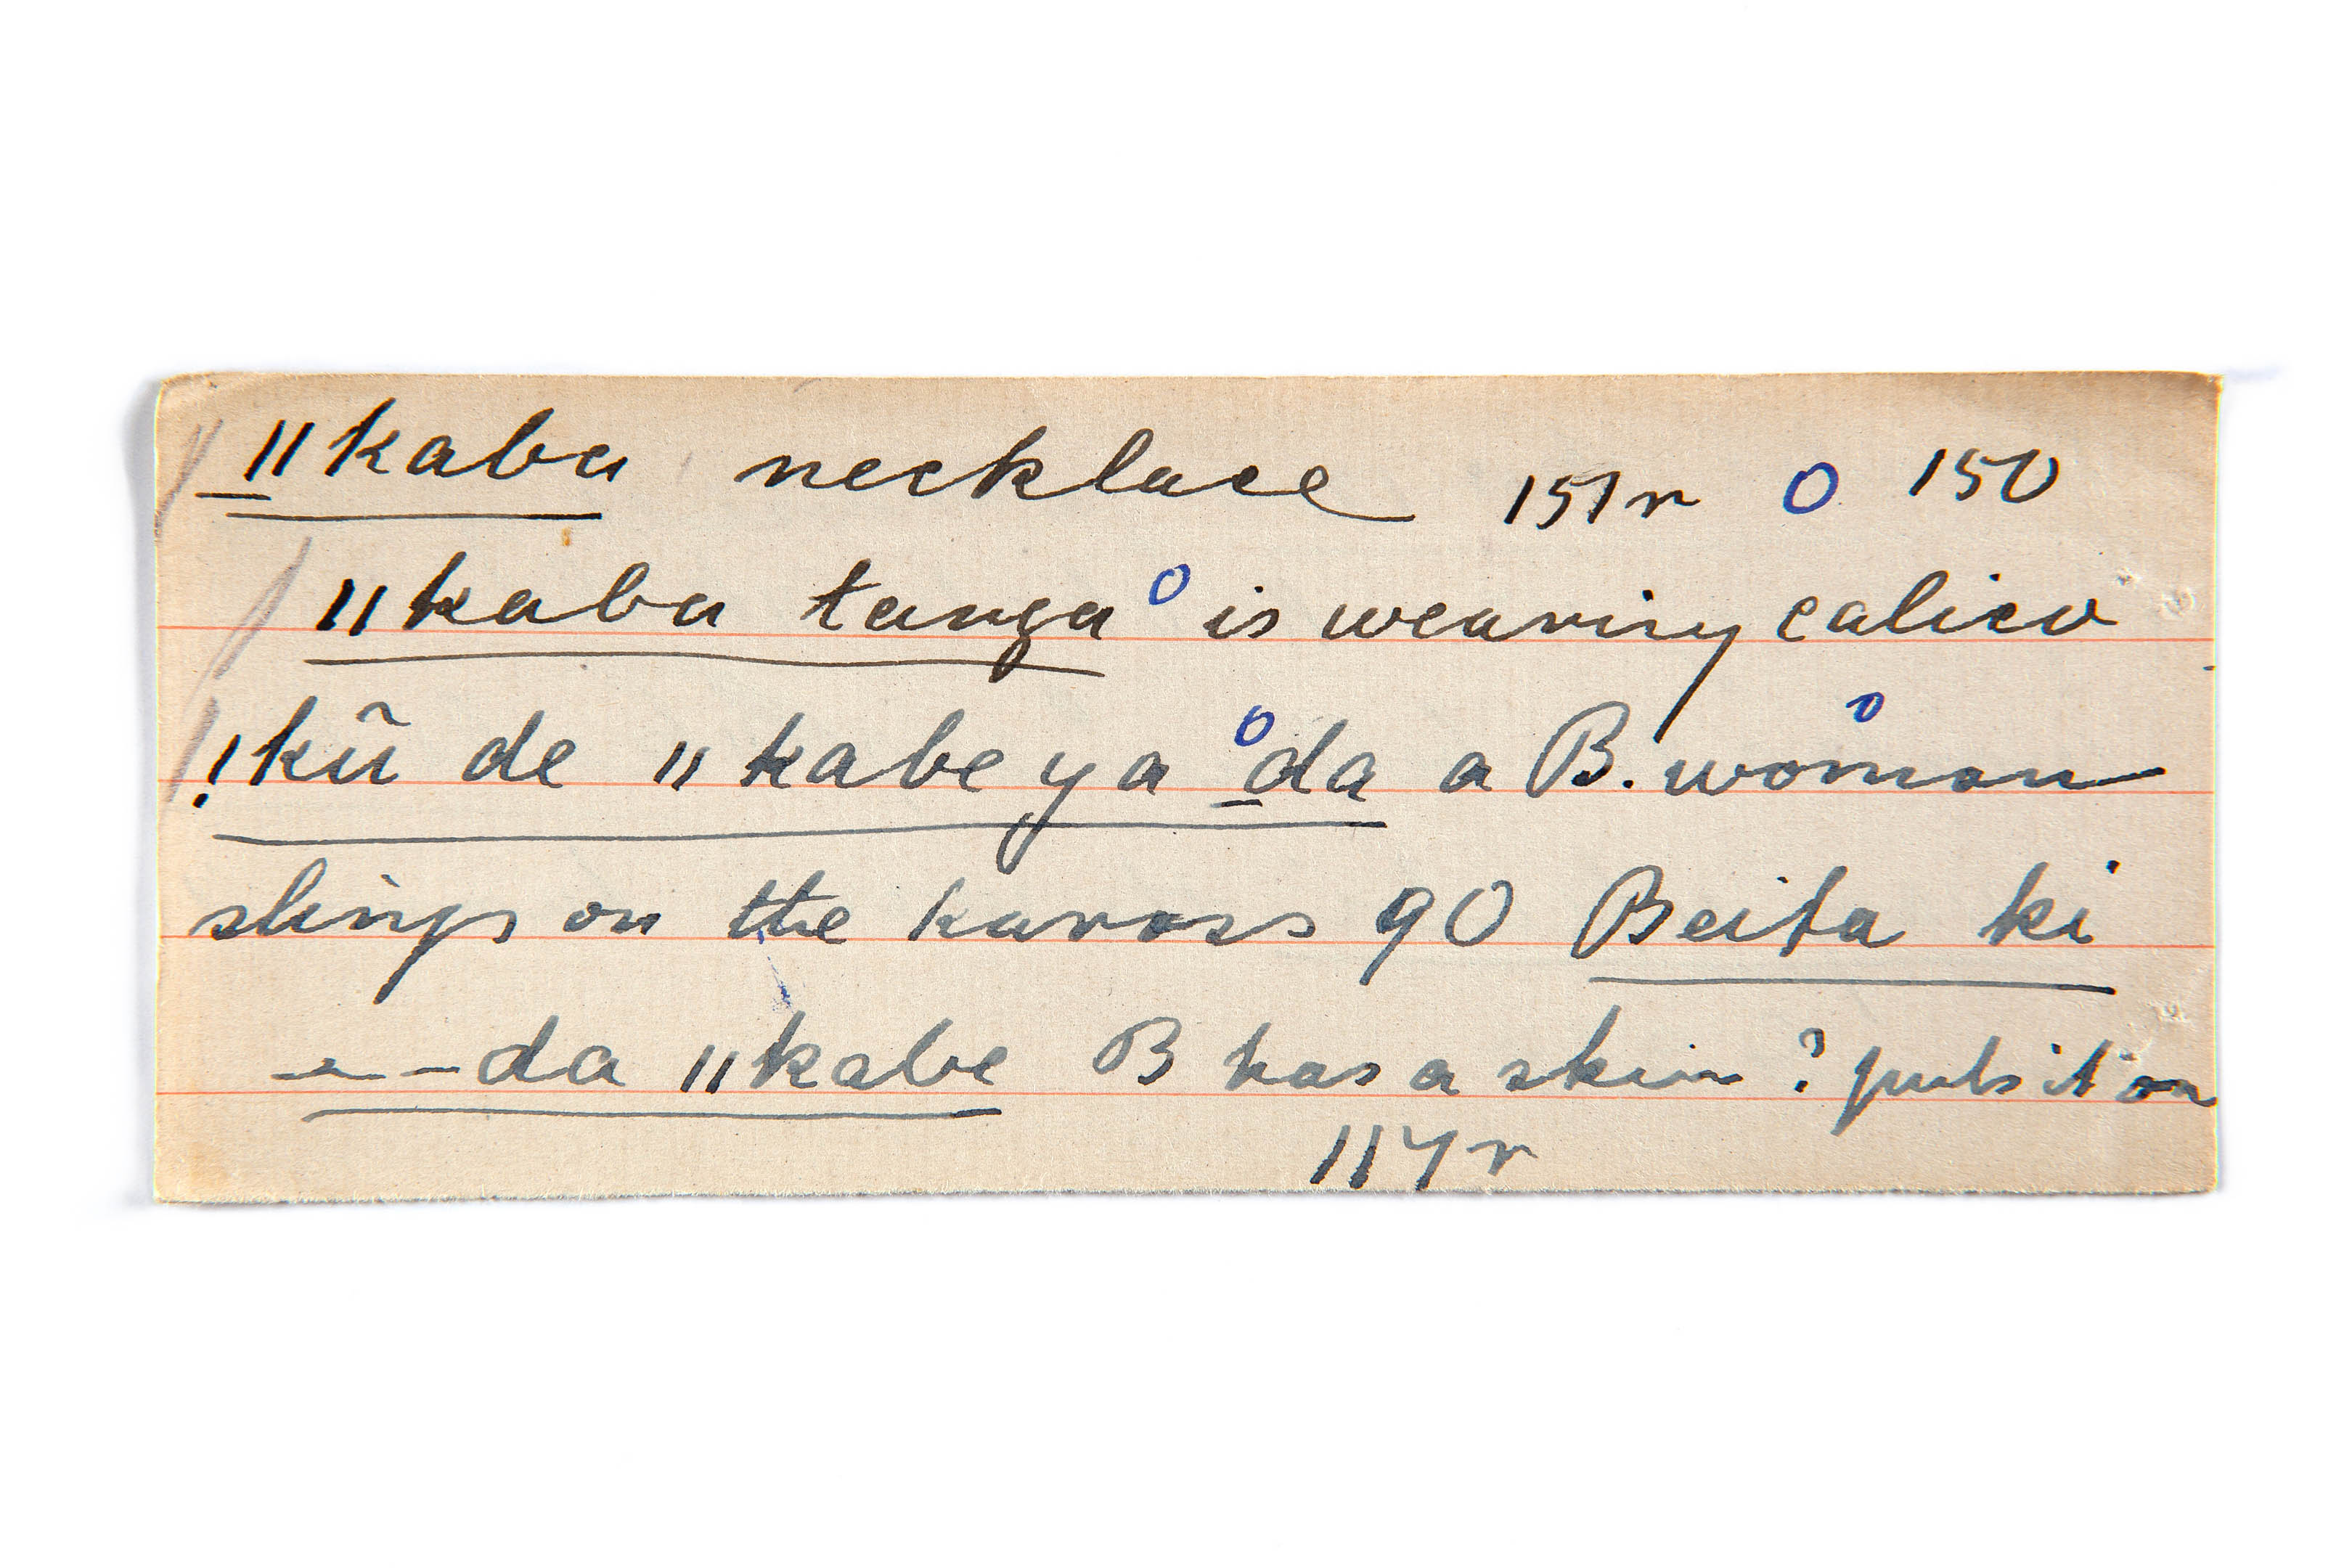 ǁkaba necklace 151r O 150
ǁkaba tanga o is wearing calico
!kũ de ǁkabe ya o _da a B. woman
slings on the kaross 90 Beita ki
_da ǁkabe B has a skin ? puts it on
117r